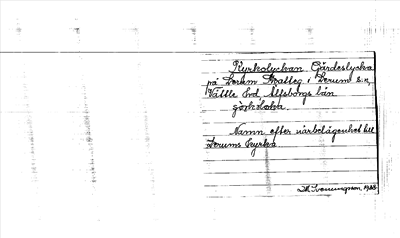 Kyrkolyckan Gärdeslycka
på Lerum Statteg i Lerum s:n,
Vättle hd Älfsborgs län
görkloka
Namn efter närbelägenhet till
Lerums kyrka
M. Svenungsson, 1933